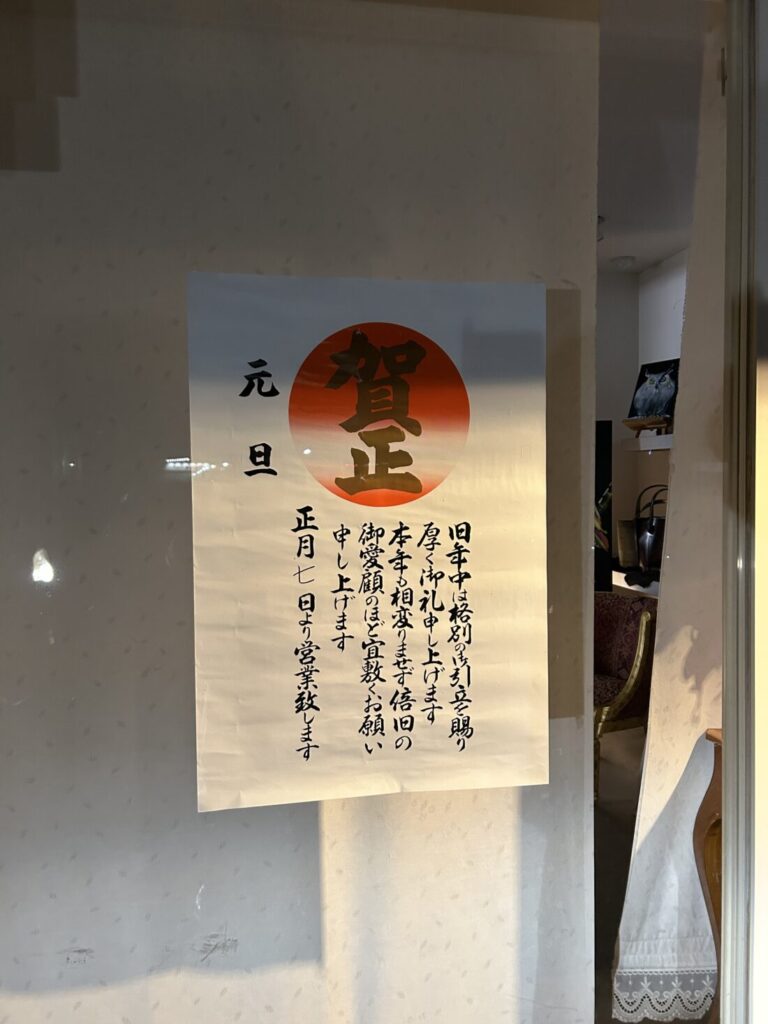 賀正
旧年中は格別の御引立を賜り
厚く御礼申し上げます
本年も相変りませず倍旧の
御愛顧のほど宜敷くお願い
申し上げます
正月七日より営業致します
元旦